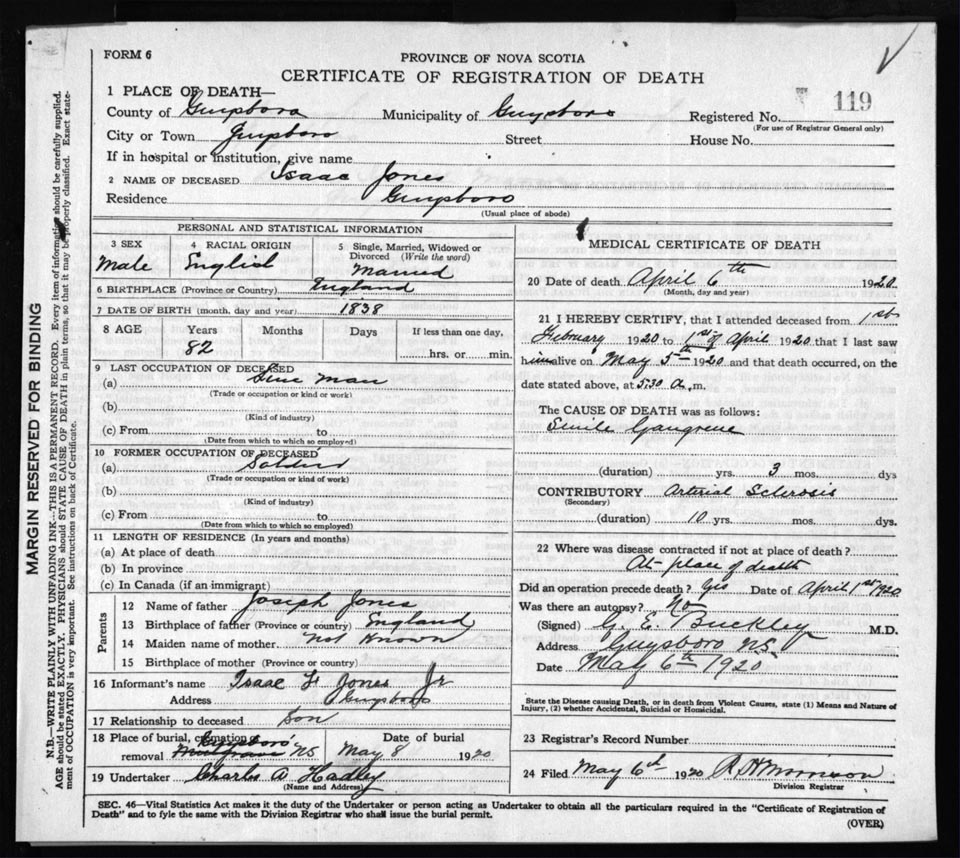 FORM 6
PROVINCE OF NOVA SCOTIA
CERTIFICATE OF REGISTRATION OF DEATH
1 PLACE OF DEATH—
County of Guysboro Municipality of Guysboro Registered No. 119
(For use of Registrar General only)
City or Town Guysboro Street House No.
If in hospital or institution, give name
2 NAME OF DECEASED Isaac Jones
Residence Guysboro
(Usual place of abode)
MARGIN RESERVED FOR BINDING
N.B.—WRITE PLAINLY WITH UNFADING INK—THIS IS A PERMANENT RECORD. Every item of information should be carefully supplied.
AGE should be stated EXACTLY. PHYSICIANS should STATE CAUSE OF DEATH in plain terms, so that it may be properly classified. Exact state-
ment of OCCUPATION is very important. See instructions on back of Certificate.
PERSONAL AND STATISTICAL INFORMATION
3 SEX 4 RACIAL ORIGIN 5 Single, Married, Widowed or
Divorced (Write the word)
Male English Married
6 BIRTHPLACE (Province or Country) England
7 DATE OF BIRTH (month, day and year) 1838
8 AGE Years Months Days If less than one day,
82 hrs. or min.
9 LAST OCCUPATION OF DECEASED
(a) man
(Trade or occupation or kind or work)
(b)
(Kind of industry)
(c) From to
(Date from which to which so employed)
10 FORMER OCCUPATION OF DECEASED
(a) Soldier
(Trade or occupation or kind of work)
(b)
(Kind of industry)
(c) From to
(Date from which to which so employed)
11 LENGTH OF RESIDENCE (In years and months)
(a) At place of death
(b) In province
(c) In Canada (if an immigrant)
Parents
12 Name of father Joseph Jones
13 Birthplace of father (Province or country) England
14 Maiden name of mother not known
15 Birthplace of mother (Province or country)
16 Informant's name Isaac F Jones Jr
Address Guysboro
17 Relationship to deceased Son
18 Place of burial, cremation or Date of burial
removal Guysboro NS May 8 1920
19 Undertaker Charles A Hadley
(Name and Address)
MEDICAL CERTIFICATE OF DEATH
20 Date of death April 6th 1920
(Month, day and year)
21 I HEREBY CERTIFY, that I attended deceased from 1st
February 1920 to 1st of April 1920 that I last saw
him alive on May 5th 1920 and that death occurred, on the
date stated above, at 5.30 a.m.
The CAUSE OF DEATH was as follows:
Senile Gangrene
(duration) yrs. 3 mos. dys
CONTRIBUTORY Arterial Sclerosis
(Secondary)
(duration) 10 yrs. mos. dys.
22 Where was disease contracted if not at place of death?
At place of death
Did an operation precede death? Yes Date of April 1st 1920
Was there an autopsy? No
(Signed) G. E. Buckley M.D.
Address Guysboro N.S.
Date May 6th 1920
State the Disease causing Death, or in death from Violent Causes, state (1) Means and Nature of
Injury, (2) whether Accidental, Suicidal or Homicidal.
23 Registrar's Record Number
24 Filed May 6th 1920 Morrison
Division Registrar
SEC. 46—Vital Statistics Act makes it the duty of the Undertaker or person acting as Undertaker to obtain all the particulars required in the "Certificate of Registration of
Death" and to fyle the same with the Division Registrar who shall issue the burial permit.
(OVER)